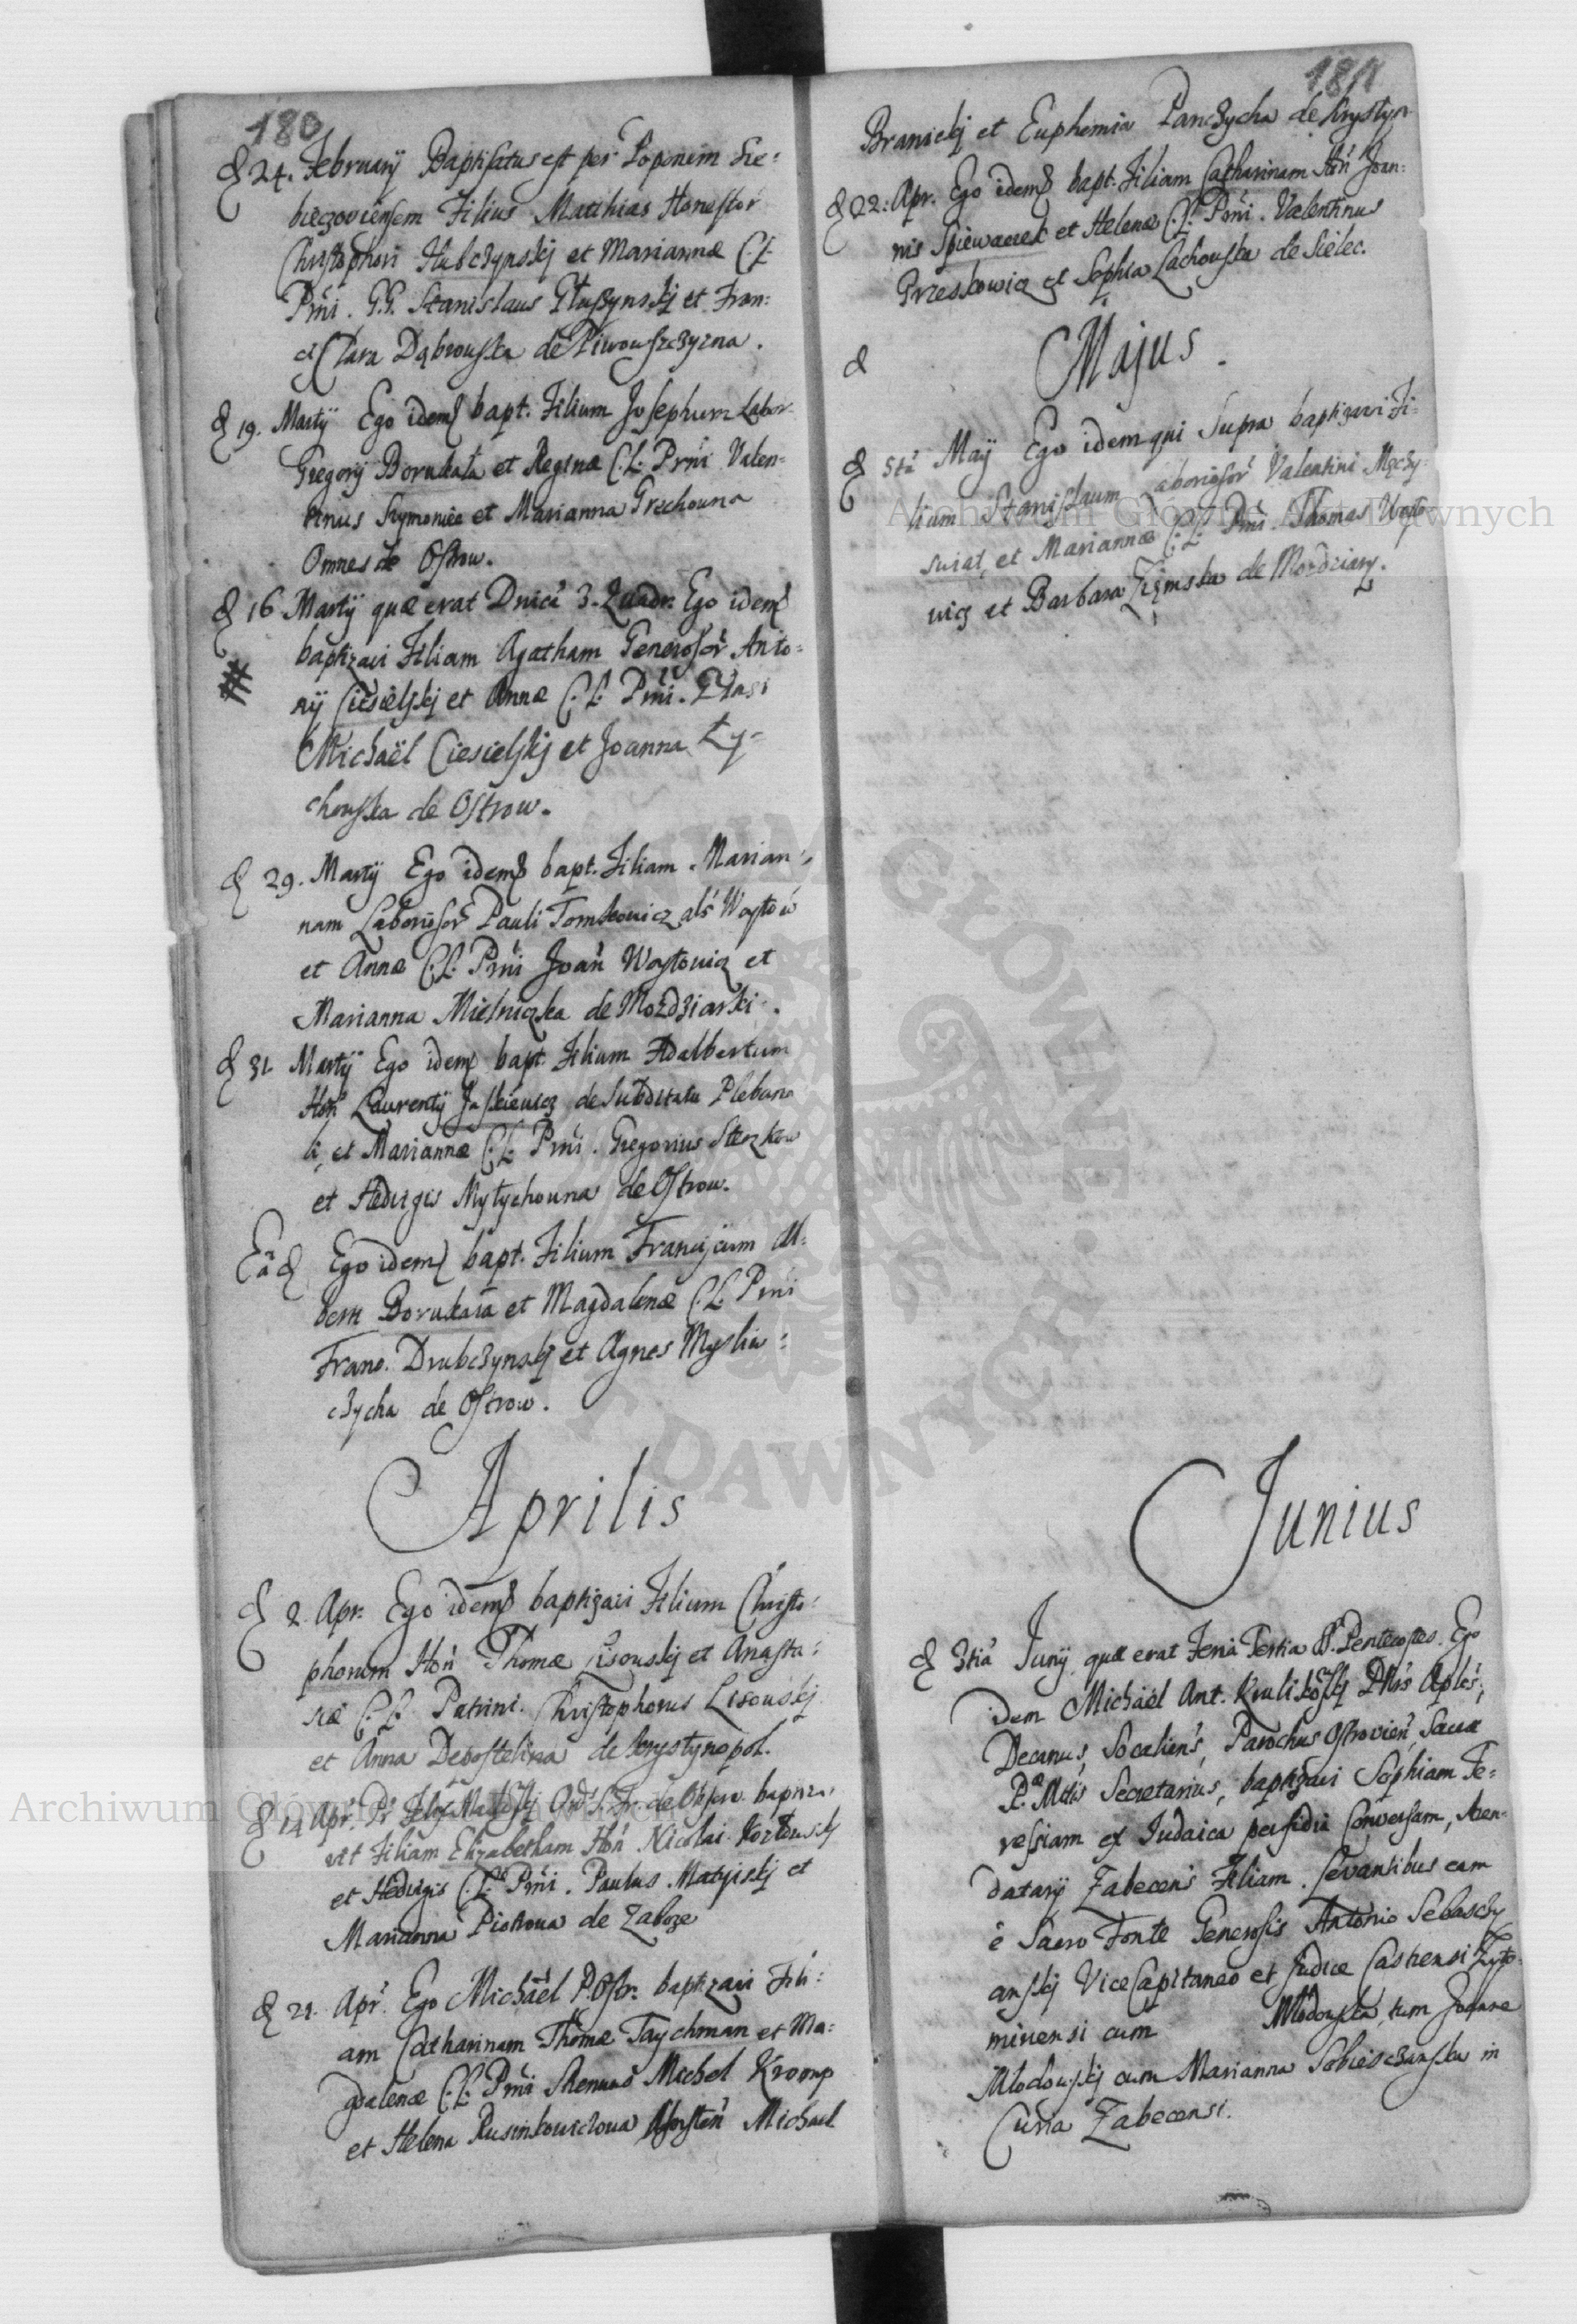 180
D 24. February Baptisatus est per Poponem Sie=
bieczoviensem Filius Matthias Honestor
Christophori Hubczynskj et Mariannæ C.L.
Prni. G.G. Stanislaus Głuszynskj et Fran=
Clara Dąbrowska de Piwowszczyzna.
D 19. Martÿ Ego idem bapt. Filium Josephum Labor.
Gregorÿ Borukała et Reginæ C.L. Prni Valen=
tinus Szymoniec et Marianna Grechowna
Omnes de Ostrow.
D 16 Martÿ quæ erat Dnica 3. Quadr. Ego idem
baptizavi Filiam Agatham Generosor Anto=
nÿ Ciesielskj et Annæ C.L. Prni.
Michaël Ciesielskj et Joanna Ły=
chowska de Ostrow.
D 29. Martÿ Ego idem bapt. Filiam Marian=
nam Laboriosor Pauli Tomkowicz als Woytow
et Annæ C.L. Prni Joan Woytowicz et
Marianna Mielniczka de Mozdziarki.
D 31 Martÿ Ego idem bapt. Filium Adalbertum
Hon Laurentÿ Jaskiewicz de Subditatu Plebana
li, et Mariannæ C.L. Prni. Gregorius
et Hedvigis Mytychowna de Ostrow.
Eâd Ego idem bapt. Filium Franciscum Al=
berti Borukała et Magdalenæ C.L. Prni
Franc. Drubczynskj et Agnes Mysliw=
czycha de Ostrow.
Aprilis
D 2. Apr. Ego idem baptizavi Filium Christo=
phorum Hon Thomæ Lisowskj et Anasta=
siæ C.L. Patrini. Christophorus Lisowskj
et Anna Depostelina de Krystynopol.
D 14 Apr. Pr Ord. S. Fr. de Observ. baptiza
vit Filiam Elizabetham Hon Nicolai
et Hedvigis C.L. Prni. Paulus Matyiskj et
Marianna Piotrowa de Zabcze
D 21. Apr. Ego Michaël P. Ostr. baptizavi Fili=
am Catharinam Thomæ Taychman et Ma=
gdalenæ C.L. Prni Michel Kromp
et Helena Rusinkowiczowa Michael
181
Branickj et Euphemia Panczycha de Krystyn
D 22. Apr. Ego idem bapt. Filiam Catharinam Hon Joan=
nis Spiewaczek et Helenæ C.L. Prni. Valentinus
Przeskowicz et Sophia Lachowska de Sielec.
D
Majus.
D 5ta Maÿ Ego idem qui Supra baptizavi Fi=
lium Stanislaum Laboriosor Valentini Męczy=
swiat, et Mariannæ C.L. Prni. Thomas Woyto
wicz et Barbara Ziemska de Mozdziary.
Junius
D 3tia Junÿ quæ erat Feria Tertia S. Pentecostes. Ego
idem Michaël Ant. Krulikoskj Aplcs,
Decanus, Socaliens, Parochus Ostrovien, Sacræ
Ræ Mtis Secretarius, baptizavi Sophiam Te=
ressiam ex Judaica perfidia Conversam, Aren=
datarÿ Zabecens Filiam. Levantibus eam
è Sacro Fonte Generosis Antonio Sebasczy
anskj ViceCapitaneo et Judice Castrensi Zyto
miriensi cum Młodowska, tum Joanne
Młodowskj cum Marianna Sobiesczanska in
Curia Zabecensi.
Archiwum Główne Akt Dawnych